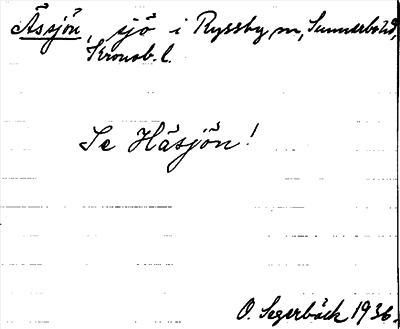 Åssjön, sjö i Ryssby sn, Sunnerbo hd,
Kronob. l.
Se Håsjön!
O. Segerbäck 1936.